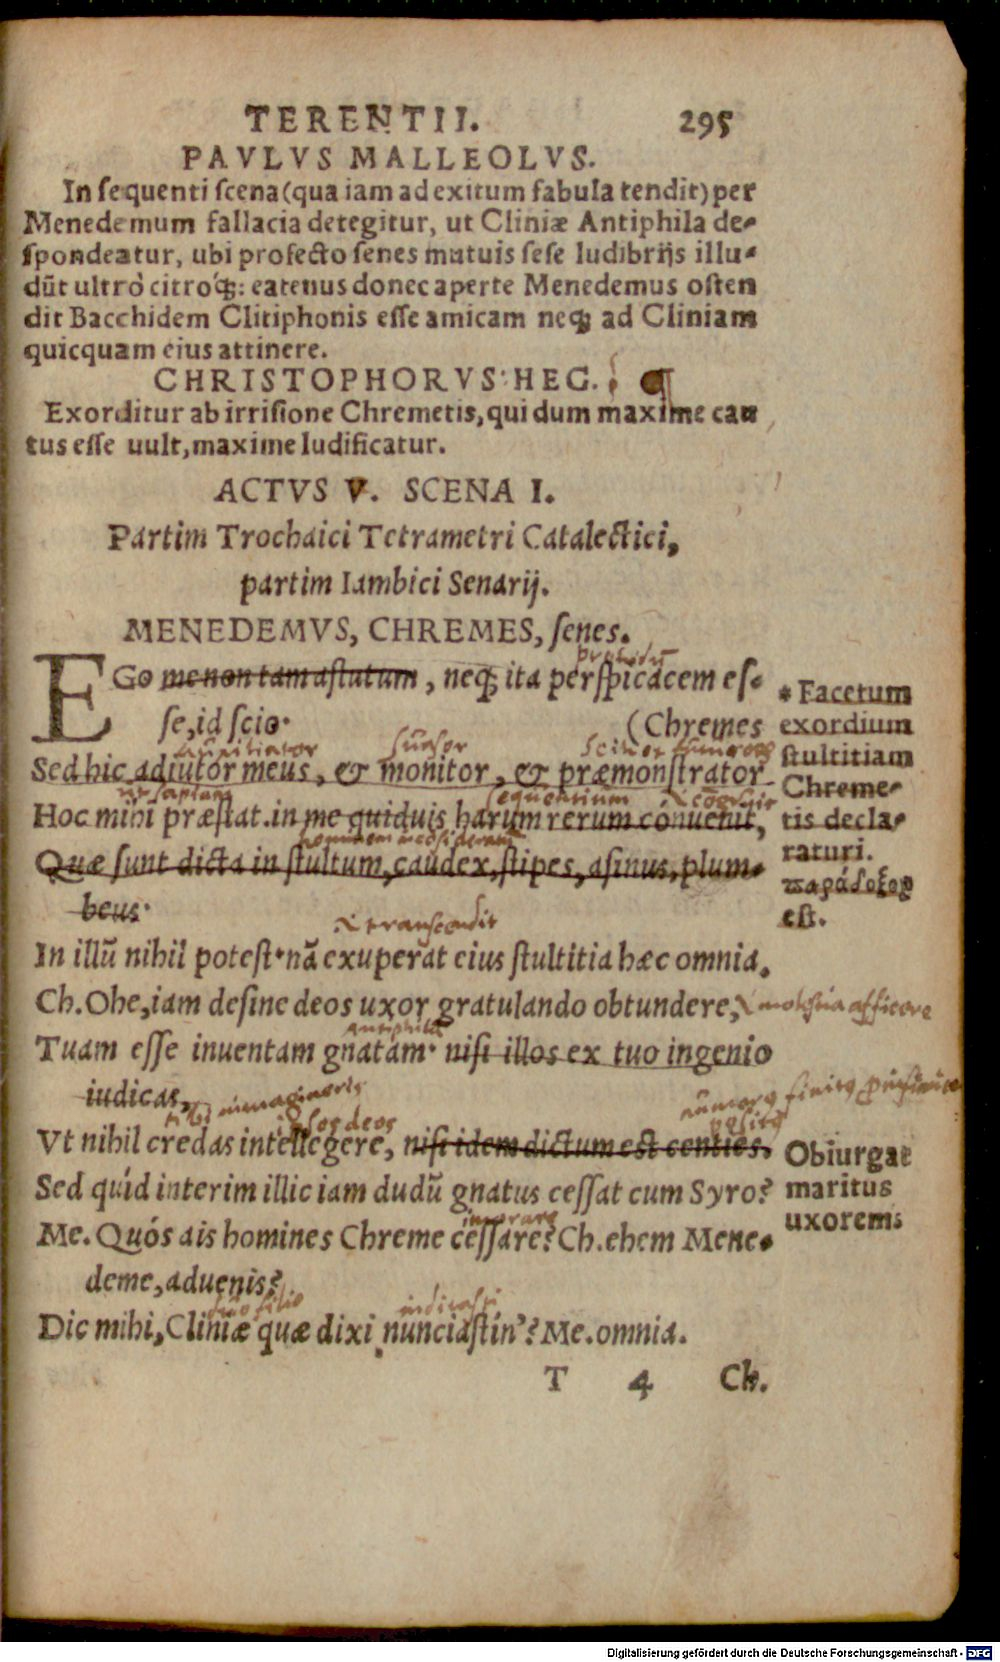 TERENTII. 295
PAVLVS MALLEOLVS.
In sequenti scena (qua iam ad exitum fabula tendit) per
Menedemum fallacia detegitur, ut Cliniæ Antiphila de-
spondeatur, ubi profecto senes mutuis sese ludibrijs illu-
dūt ultrò citróq́;: eatenus donec aperte Menedemus osten
dit Bacchidem Clitiphonis esse amicam neq; ad Cliniam
quicquam eius attinere.
CHRISTOPHORVS HEG.
Exorditur ab irrisione Chremetis, qui dum maxime cau
tus esse uult, maxime ludificatur.
ACTVS V. SCENA I.
Partim Trochaici Tetrametri Catalectici,
partim Iambici Senarij.
MENEDEMVS, CHREMES, senes.
EGO me non tam astutum, neq; ita perspicacem es-
se, id scio. (Chremes
Sed hic adiutor meus, & monitor, & præmonstrator
suasor
Hoc mihi præstat. in me quiduis harum rerum conuenit,
sequentium
Quæ sunt dicta in stultum, caudex, stipes, asinus, plum-
beus.
transcendit
In illū nihil potest. nā exuperat eius stultitia hæc omnia.
Ch. Ohe, iam desine deos uxor gratulando obtundere,
molestia afficere
Antiphilā
Tuam esse inuentam gnatam. nisi illos ex tuo ingenio
iudicas,
Vt nihil credas intellegere, nisi idem dictum est centies.
Sed quid interim illic iam dudū gnatus cessat cum Syro?
Me. Quós ais homines Chreme cessare? Ch. ehem Mene-
deme, aduenis?
suo filio
Dic mihi, Cliniæ quæ dixi nunciastin'? Me. omnia.
T 4 Ch.
* Facetum
exordium
stultitiam
Chreme-
tis decla-
raturi.
παράδοξον
est.
Obiurgat
maritus
uxorem.
Digitalisierung gefördert durch die Deutsche Forschungsgemeinschaft - DFG